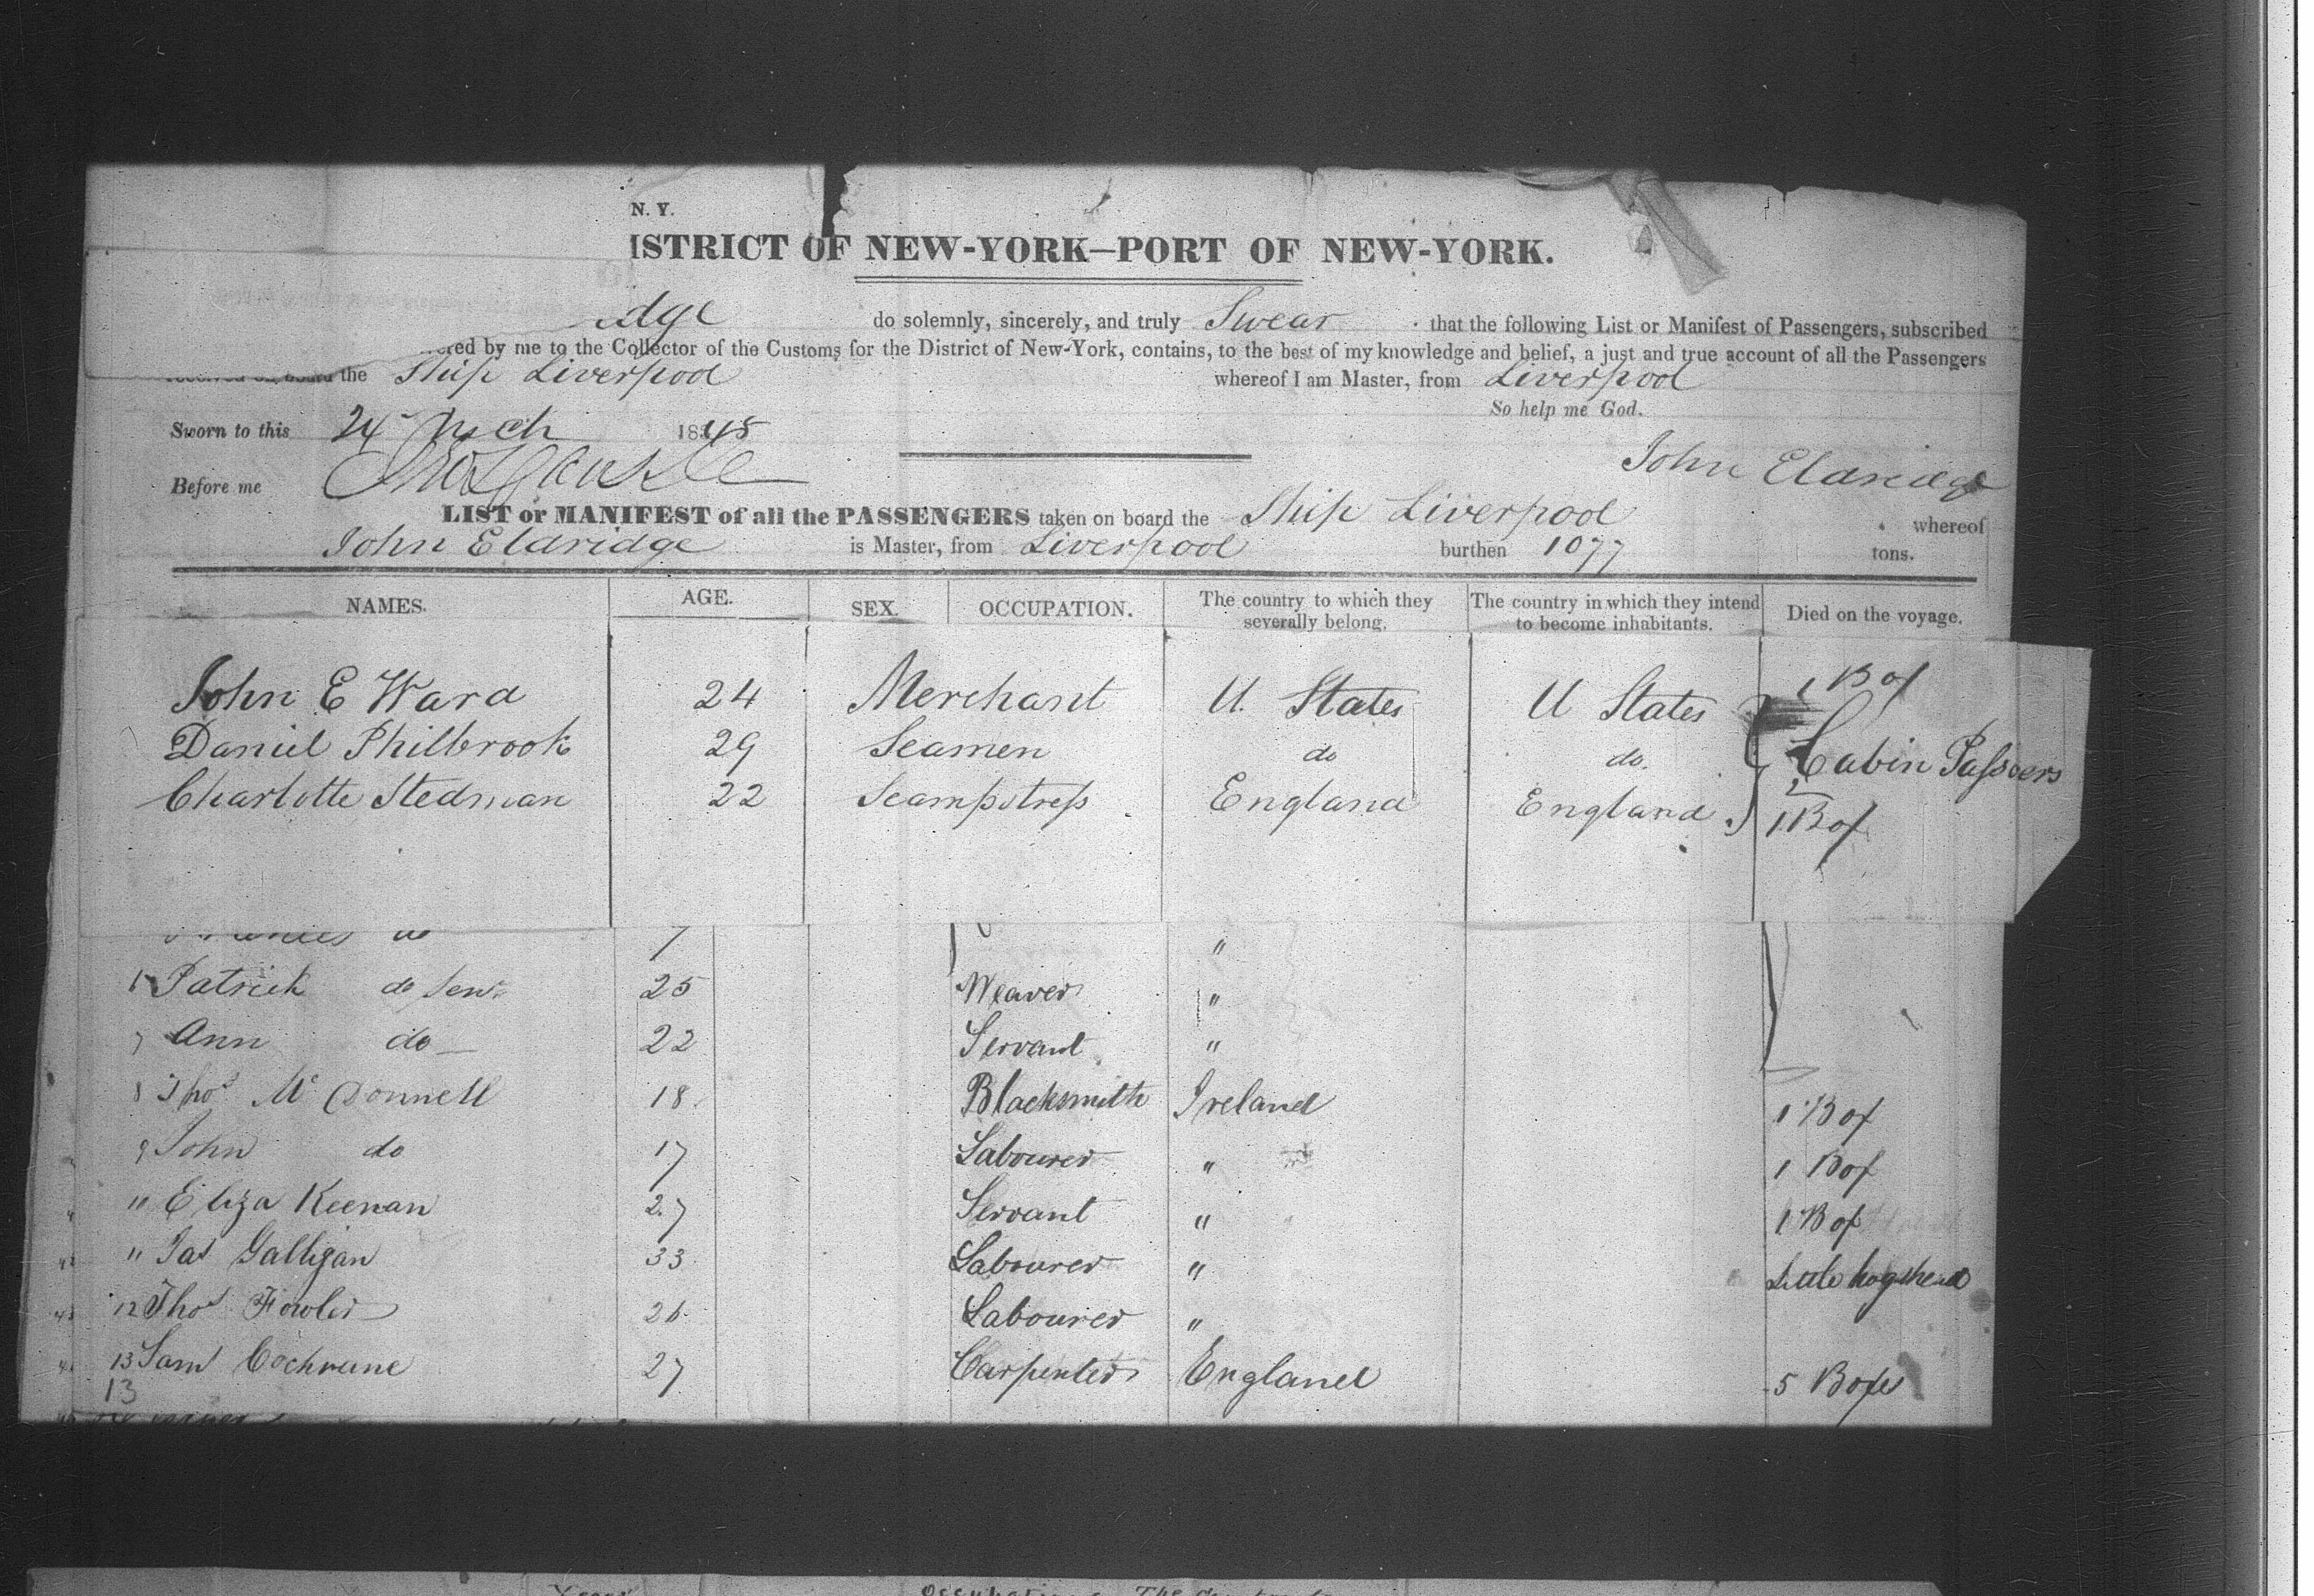 N. Y.
ISTRICT OF NEW-YORK—PORT OF NEW-YORK.
dge do solemnly, sincerely, and truly Swear that the following List or Manifest of Passengers, subscribed
ered by me to the Collector of the Customs for the District of New-York, contains, to the best of my knowledge and belief, a just and true account of all the Passengers
the Ship Liverpool whereof I am Master, from Liverpool
So help me God.
Sworn to this 24 Mch 1845
John Eldridge
Before me
LIST or MANIFEST of all the PASSENGERS taken on board the Ship Liverpool whereof
John Eldridge is Master, from Liverpool burthen 1077 tons.
NAMES. AGE. SEX. OCCUPATION. The country to which they severally belong. The country in which they intend to become inhabitants. Died on the voyage.
John E Ward 24 Merchant U. States U States 1 Box
Daniel Philbrook 29 Seamen do do. Cabin Passers
Charlotte Stedman 22 Seampstress England England 1 Box
do 7 "
Patrick do Senr 25 Weaver "
7 Ann do 22 Servant "
8 Thos Mc Donnell 18 Blacksmith Ireland 1 Box
9 John do 17 Labourer " 1 Box
" Eliza Keenan 27 Servant " 1 Box
" Jas Galligan 33 Labourer " Little hogshead
12 Thos Fowler 26 Labourer "
13 Saml Cochrane 27 Carpenter England 5 Boxes
13